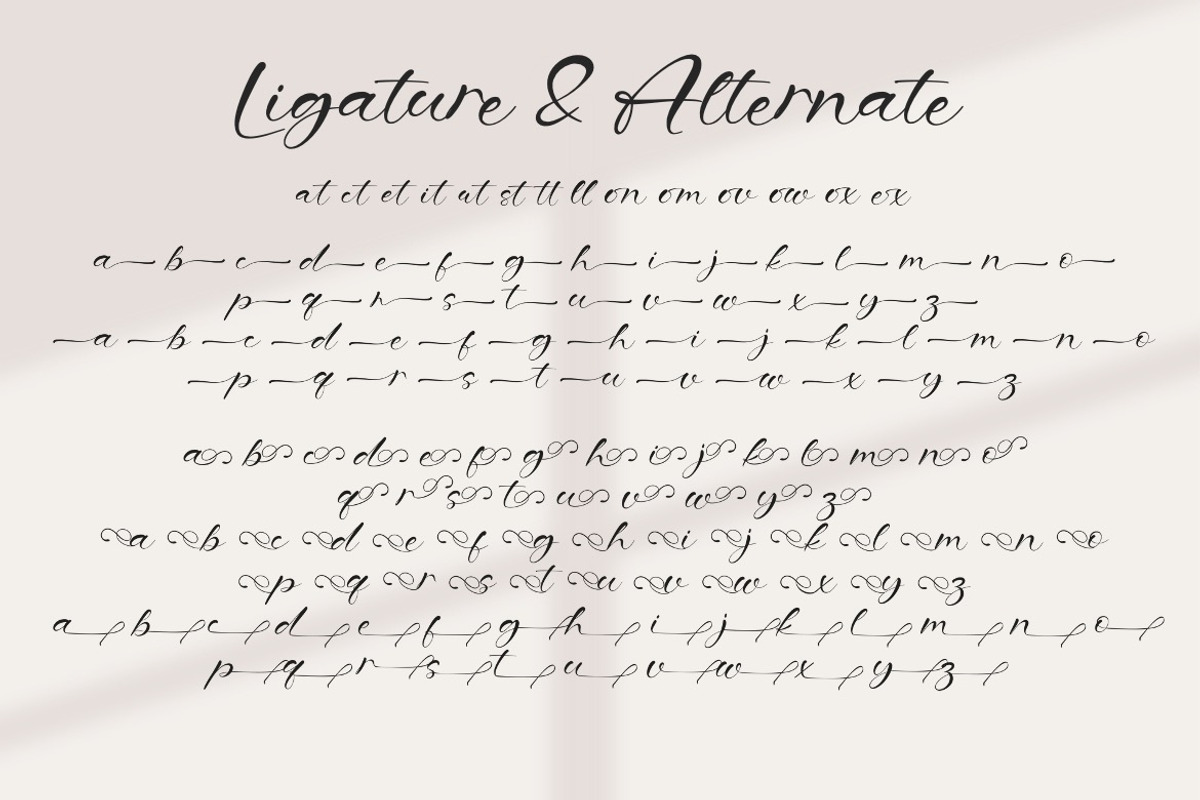 Ligature & Alternate
at ct et it ut st tt ll on om ov ow ox ex
a b c d e f g h i j k l m n o
p q r s t u v w x y z
a b c d e f g h i j k l m n o
p q r s t u v w x y z
a b c d e f g h i j k l m n o
q r s t u v w y z
a b c d e f g h i j k l m n o
p q r s t u v w x y z
a b c d e f g h i j k l m n o
p q r s t u v w x y z